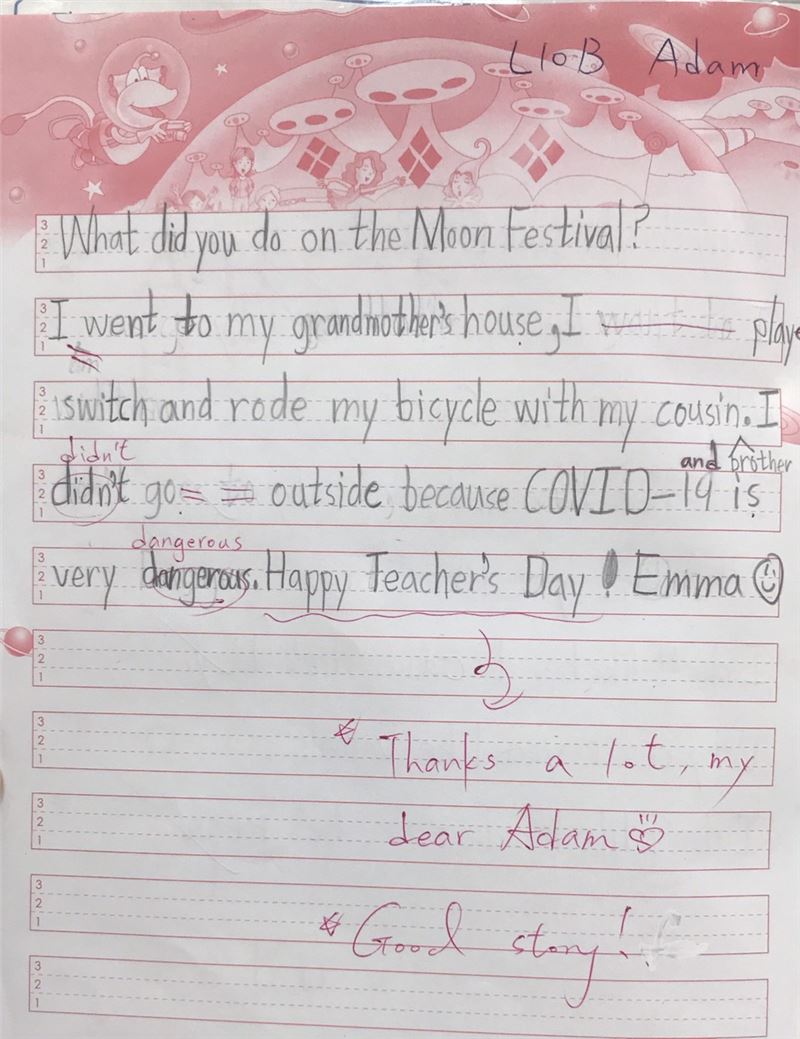 L10B Adam
What did you do on the Moon Festival?
I went to my grandmother's house, I want to playe
switch and rode my bicycle with my cousin. I
didn't
and brother
didn't go outside, because COVID-19 is
dangerous
very dangerous. Happy Teacher's Day! Emma
Thanks a lot, my
dear Adam
Good story!